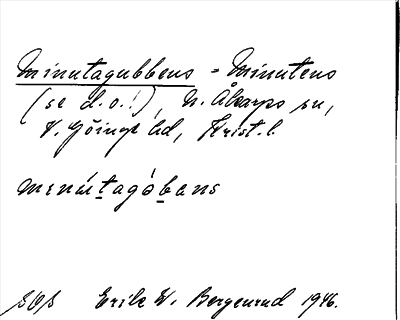 Minutagubbens = Minutens
(se d.o.!), N. Åkarps sn,
V. Göinge hd, Krist. l.
menútagòbens
Erik W. Bergenrud 1946.